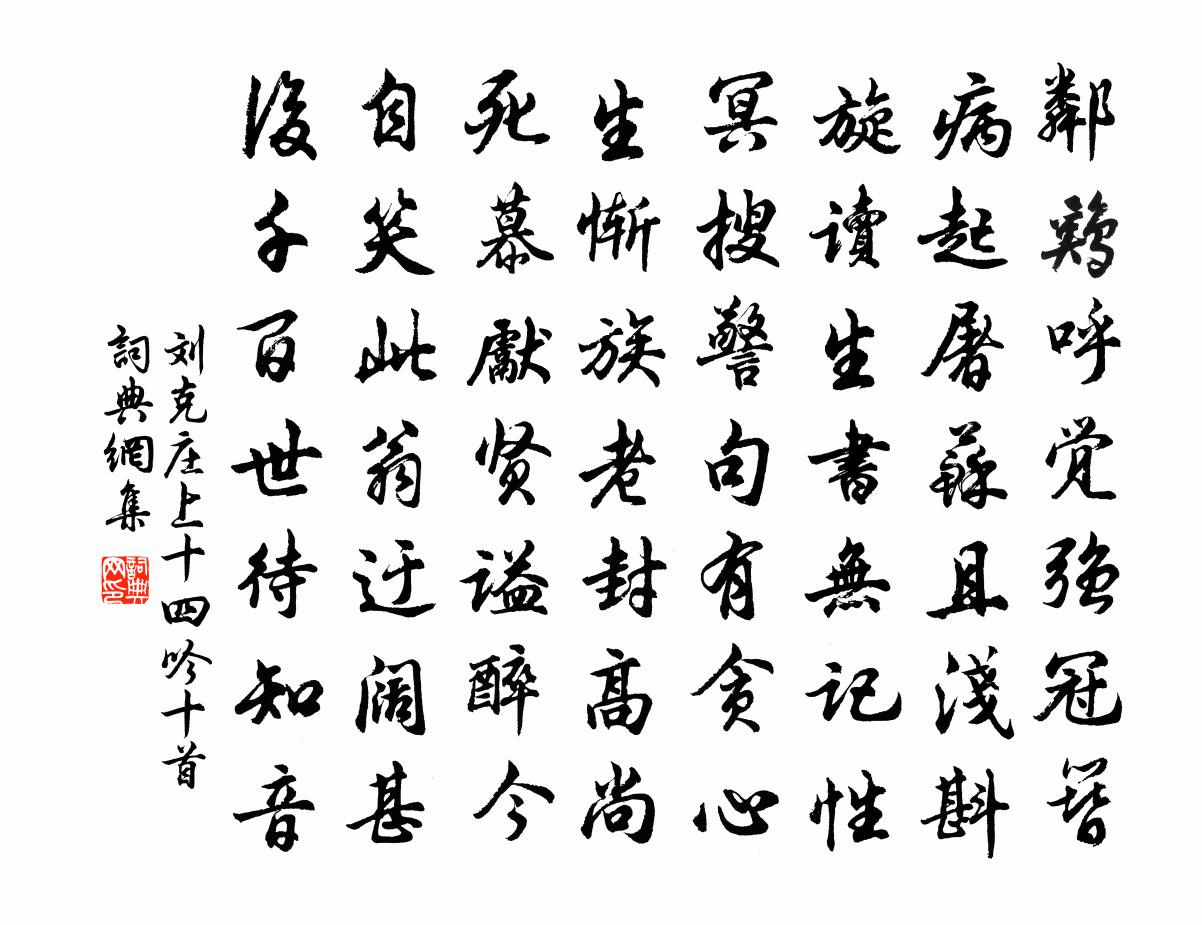 鄰鷄呼覚强冠簪
病起屠蘇且淺斟
旋讀生書無记性
冥搜警句有贪心
生惭族老封高尚
死慕獻贤谥醉今
自笑此翁迂阔甚
後千百世待知音
刘克庄上十四吟十首
詞典網集
詞典网印